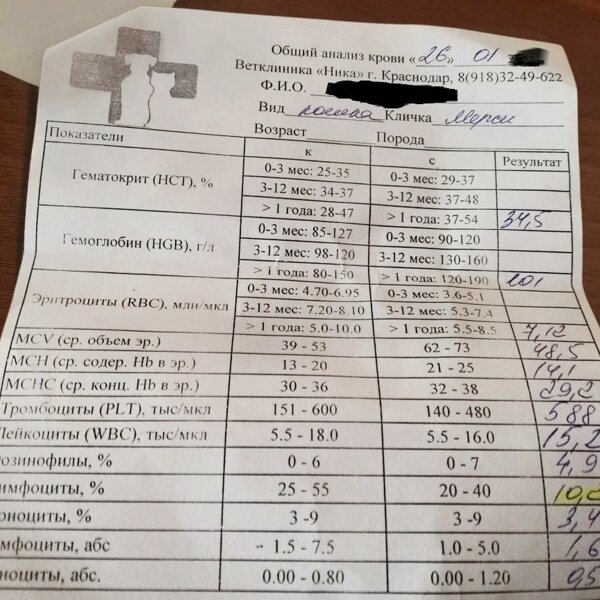 Общий анализ крови «26» 01
Ветклиника «Ника» г. Краснодар, 8(918)32-49-622
Ф.И.О.
Вид кошка Кличка Мерси
Возраст Порода
Показатели к с Результат
Гематокрит (HCT), % 0-3 мес: 25-35 0-3 мес: 29-37
3-12 мес: 34-37 3-12 мес: 37-48
> 1 года: 28-47 > 1 года: 37-54 34,5
Гемоглобин (HGB), г/л 0-3 мес: 85-127 0-3 мес: 90-120
3-12 мес: 98-120 3-12 мес: 130-160
> 1 года: 80-150 > 1 года: 120-190 101
Эритроциты (RBC), млн/мкл 0-3 мес: 4.70-6.95 0-3 мес: 3.6-5.1
3-12 мес: 7.20-8.10 3-12 мес: 5.3-7.4
> 1 года: 5.0-10.0 > 1 года: 5.5-8.5 7,12
MCV (ср. объем эр.) 39 - 53 62 - 73 48,5
MCH (ср. содер. Hb в эр.) 13 - 20 21 - 25 14,1
MCHC (ср. конц. Hb в эр.) 30 - 36 32 - 38 29,2
Тромбоциты (PLT), тыс/мкл 151 - 600 140 - 480 588
Лейкоциты (WBC), тыс/мкл 5.5 - 18.0 5.5 - 16.0 15,2
озинофилы, % 0 - 6 0 - 7 4,9
имфоциты, % 25 - 55 20 - 40
оноциты, % 3 -9 3 -9 3,4
мфоциты, абс 1.5 - 7.5 1.0 - 5.0 1,6
ноциты, абс. 0.00 - 0.80 0.00 - 1.20 0,5